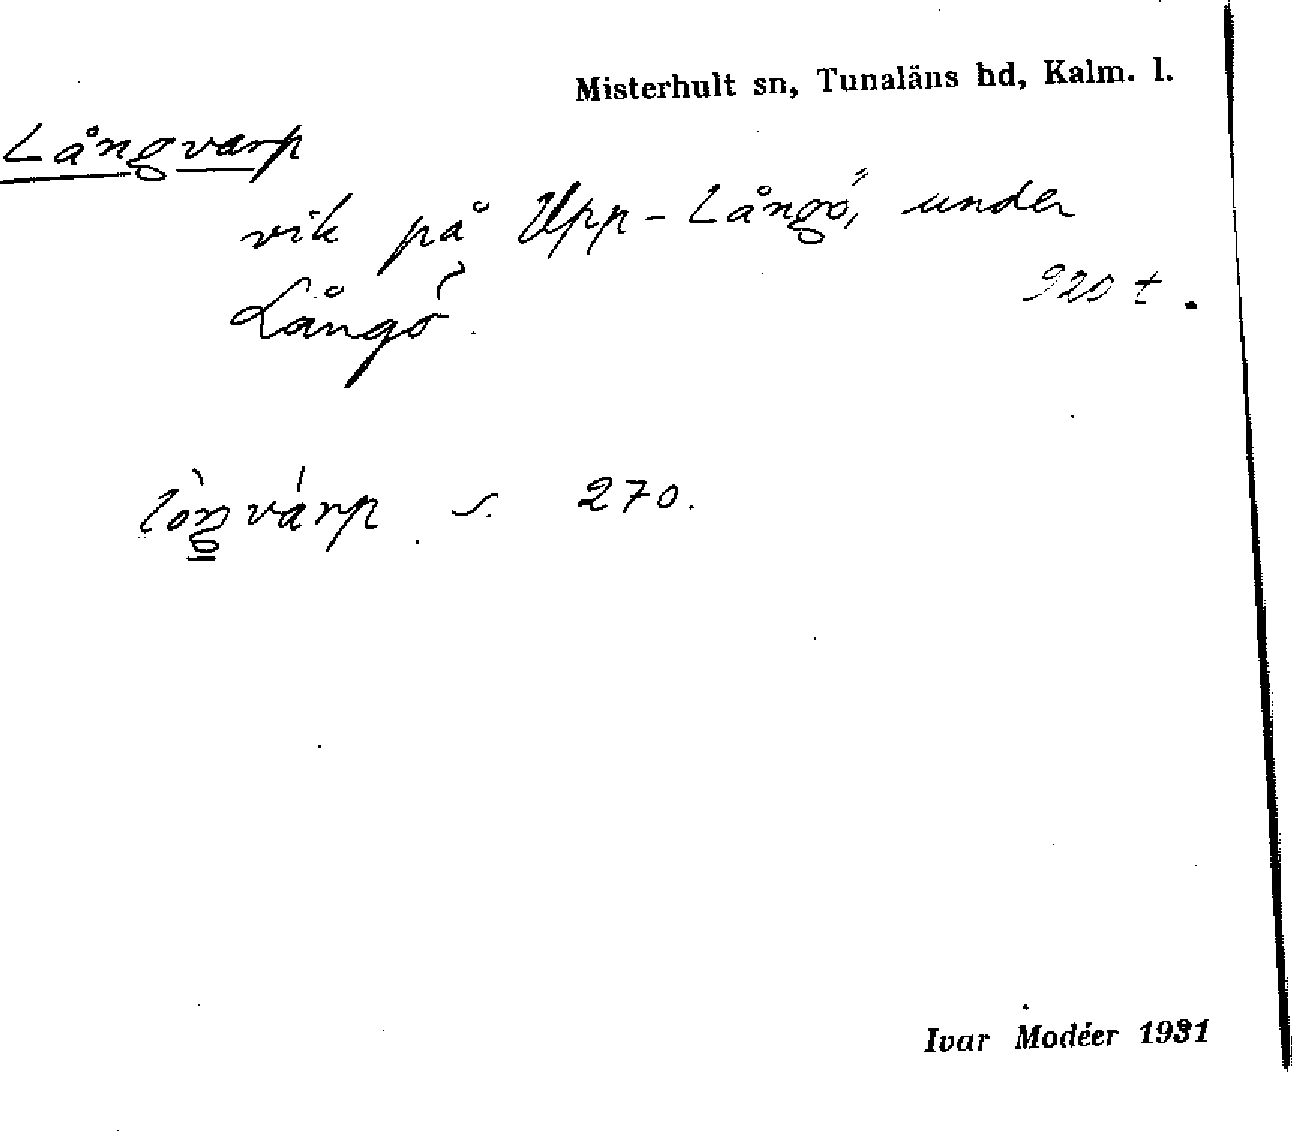 Misterhult sn, Tunaläns hd, Kalm. l.
Långvarp
vik på Upp-Långö, under
Långö. 920 t.
lòngvárp s. 270.
Ivar Modéer 1931